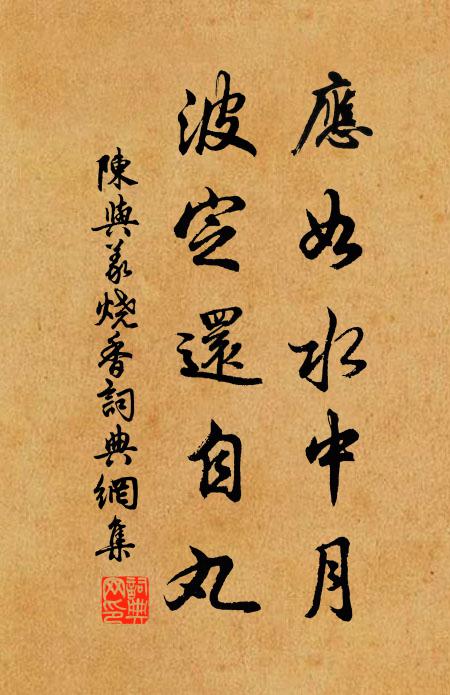 應如水中月
波定還自丸
陳與義燒香詞典網集
詞典網印